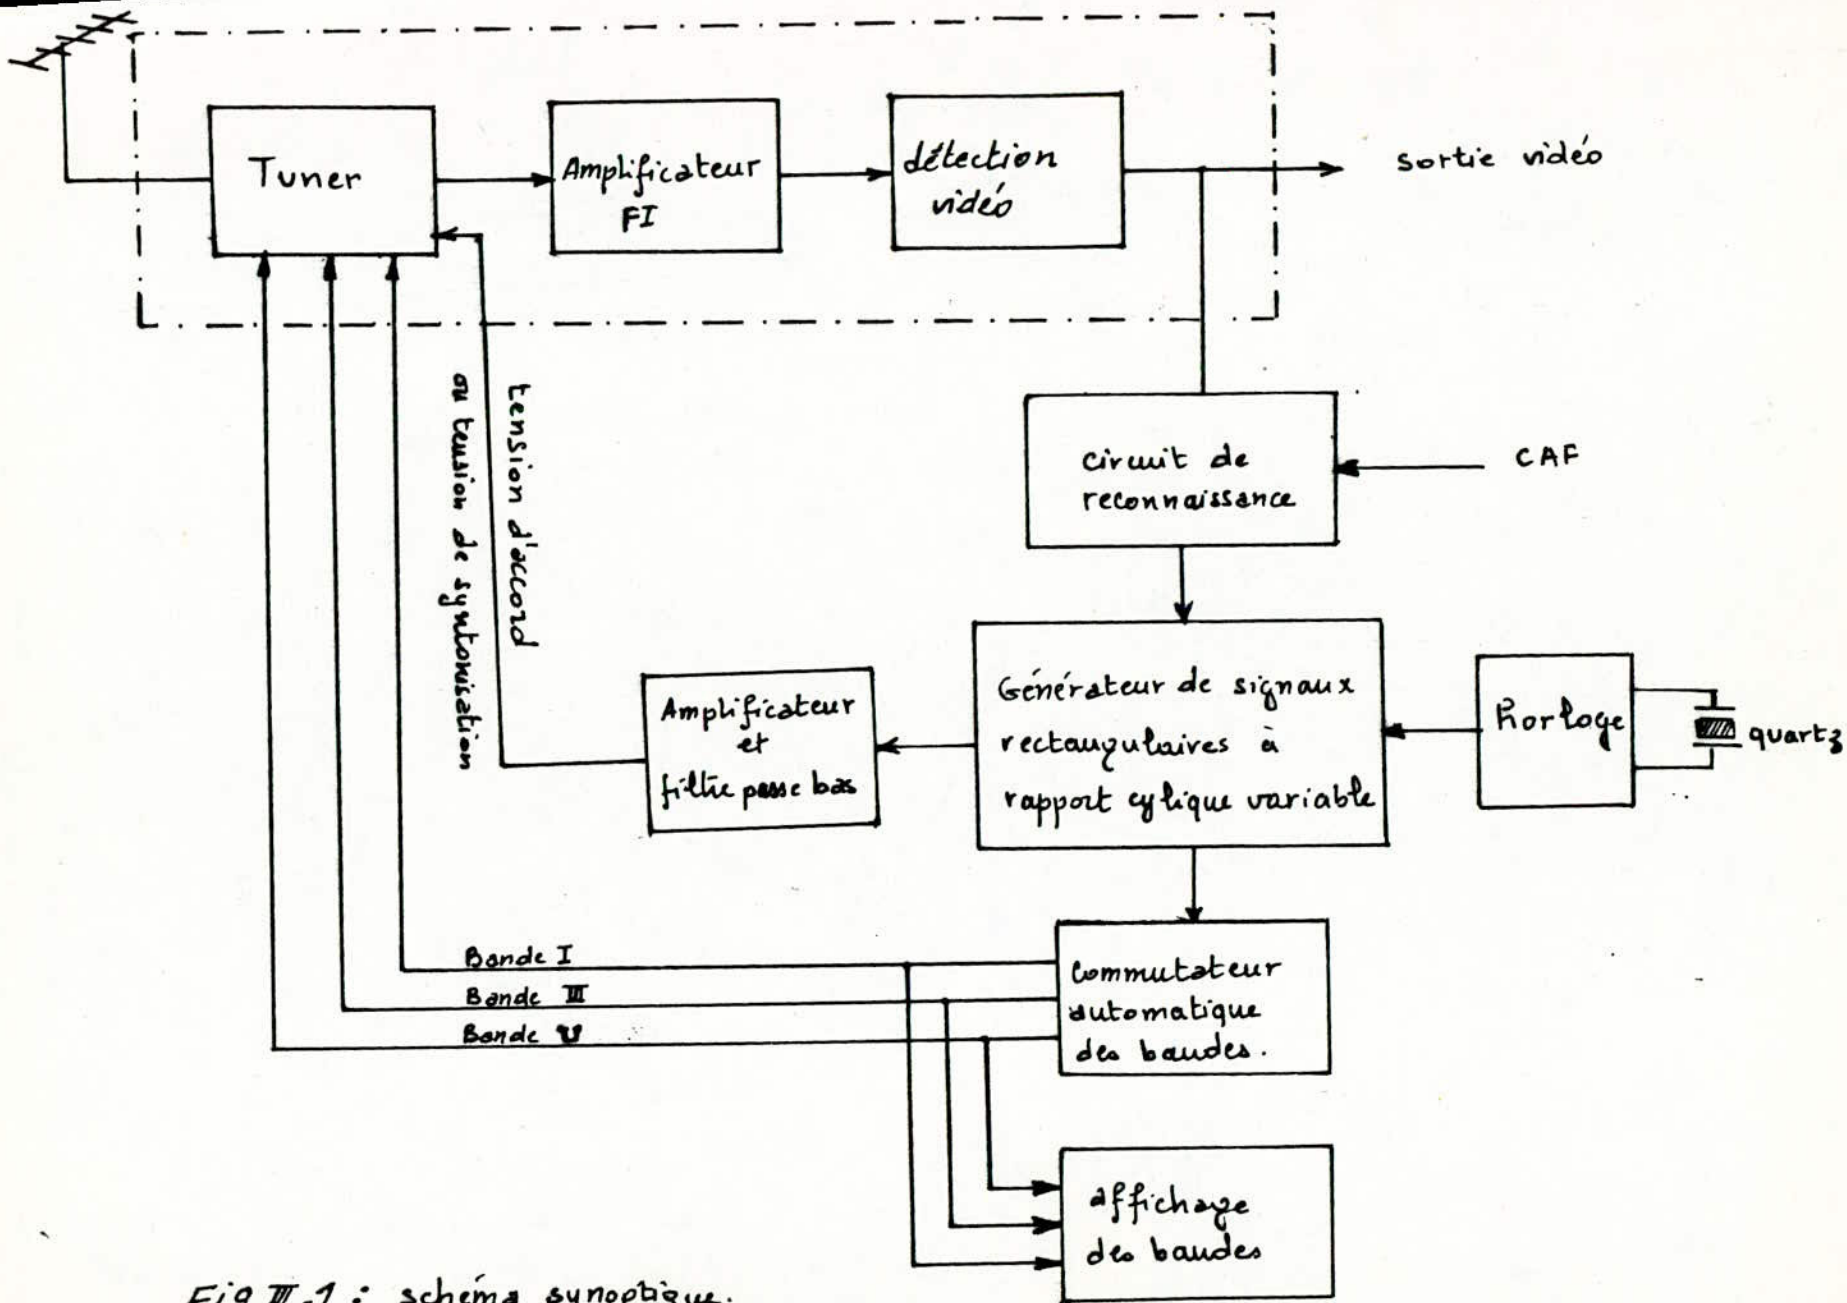 Tuner
Amplificateur
FI
détection
vidéo
sortie vidéo
tension d'accord
ou tension de syntonisation
circuit de
reconnaissance
CAF
Générateur de signaux
rectangulaires à
rapport cylique variable
horloge
quartz
Amplificateur
et
filtre passe bas
Bande I
Bande III
Bande U
Commutateur
automatique
des bandes.
affichage
des bandes
Fig III.1 : schéma synoptique.